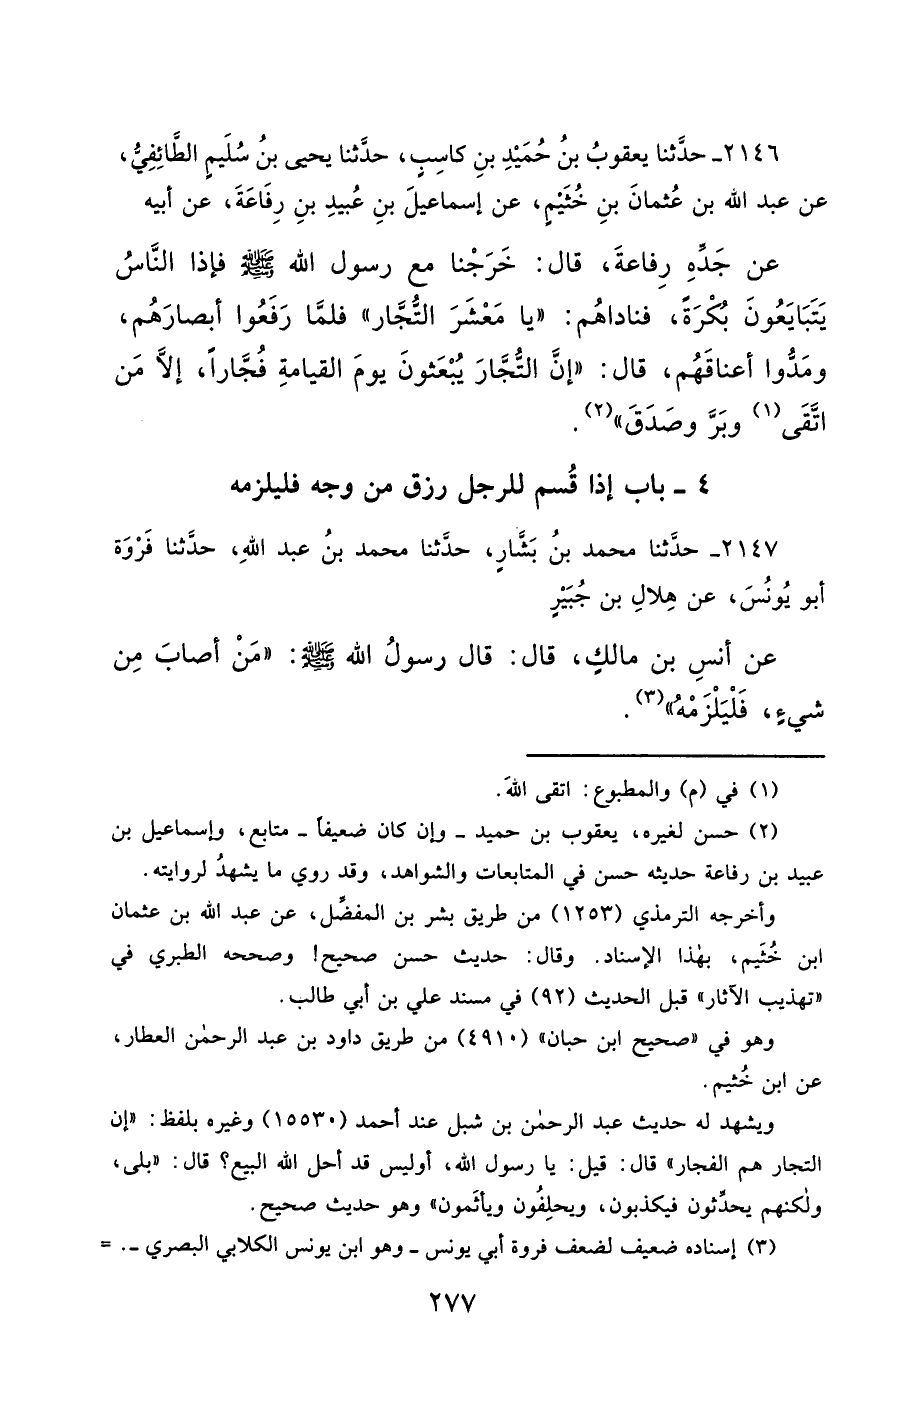 ٢١٤٦ـ حدَّثنا يعقوبُ بنُ حُمَيْدِ بنِ كاسِبٍ، حدَّثنا يحيى بنُ سُلَيمٍ الطَّائِفِيُّ،
عن عبد الله بن عُثمانَ بنِ خُثَيْمٍ، عن إسماعيلَ بنِ عُبيدِ بنِ رِفَاعَةَ، عن أبيه
عن جَدِّهِ رِفاعةَ، قال: خَرَجْنا مع رسول الله ﷺ فإذا النَّاسُ
يَتَبَايَعُونَ بُكْرَةً، فناداهُم: «يا مَعْشَرَ التُّجَّار» فلمَّا رَفَعُوا أبصارَهُم،
ومَدُّوا أعناقَهُم، قال: «إنَّ التُّجَّارَ يُبْعَثونَ يومَ القيامةِ فُجَّاراً، إلاَّ مَن
اتَّقَى(١) وبَرَّ وصَدَقَ»(٢).
٤ ـ باب إذا قُسم للرجل رزق من وجه فليلزمه
٢١٤٧ـ حدَّثنا محمد بنُ بَشَّارٍ، حدَّثنا محمد بنُ عبد اللهِ، حدَّثنا فَرْوَة
أبو يُونُسَ، عن هِلالِ بن جُبَيْرٍ
عن أنسِ بن مالكٍ، قال: قال رسولُ الله ﷺ: «مَنْ أصابَ مِن
شيءٍ، فَلْيَلْزَمْهُ»(٣).
(١) في (م) والمطبوع: اتقى اللهَ.
(٢) حسن لغيره، يعقوب بن حميد ـ وإن كان ضعيفاً ـ متابع، وإسماعيل بن
عبيد بن رفاعة حديثه حسن في المتابعات والشواهد، وقد روي ما يشهدُ لروايته.
وأخرجه الترمذي (١٢٥٣) من طريق بشر بن المفضَّل، عن عبد الله بن عثمان
ابن خُثَيم، بهٰذا الإسناد. وقال: حديث حسن صحيح! وصححه الطبري في
«تهذيب الآثار» قبل الحديث (٩٢) في مسند علي بن أبي طالب.
وهو في «صحيح ابن حبان» (٤٩١٠) من طريق داود بن عبد الرحمٰن العطار،
عن ابن خُثيم.
ويشهد له حديث عبد الرحمٰن بن شبل عند أحمد (١٥٥٣٠) وغيره بلفظ: «إن
التجار هم الفجار» قال: قيل: يا رسول الله، أوليس قد أحل الله البيع؟ قال: «بلى،
ولٰكنهم يحدِّثون فيكذبون، ويحلِفُون ويأثَمون» وهو حديث صحيح.
(٣) إسناده ضعيف لضعف فروة أبي يونس ـ وهو ابن يونس الكلابي البصري ـ. =
٢٧٧